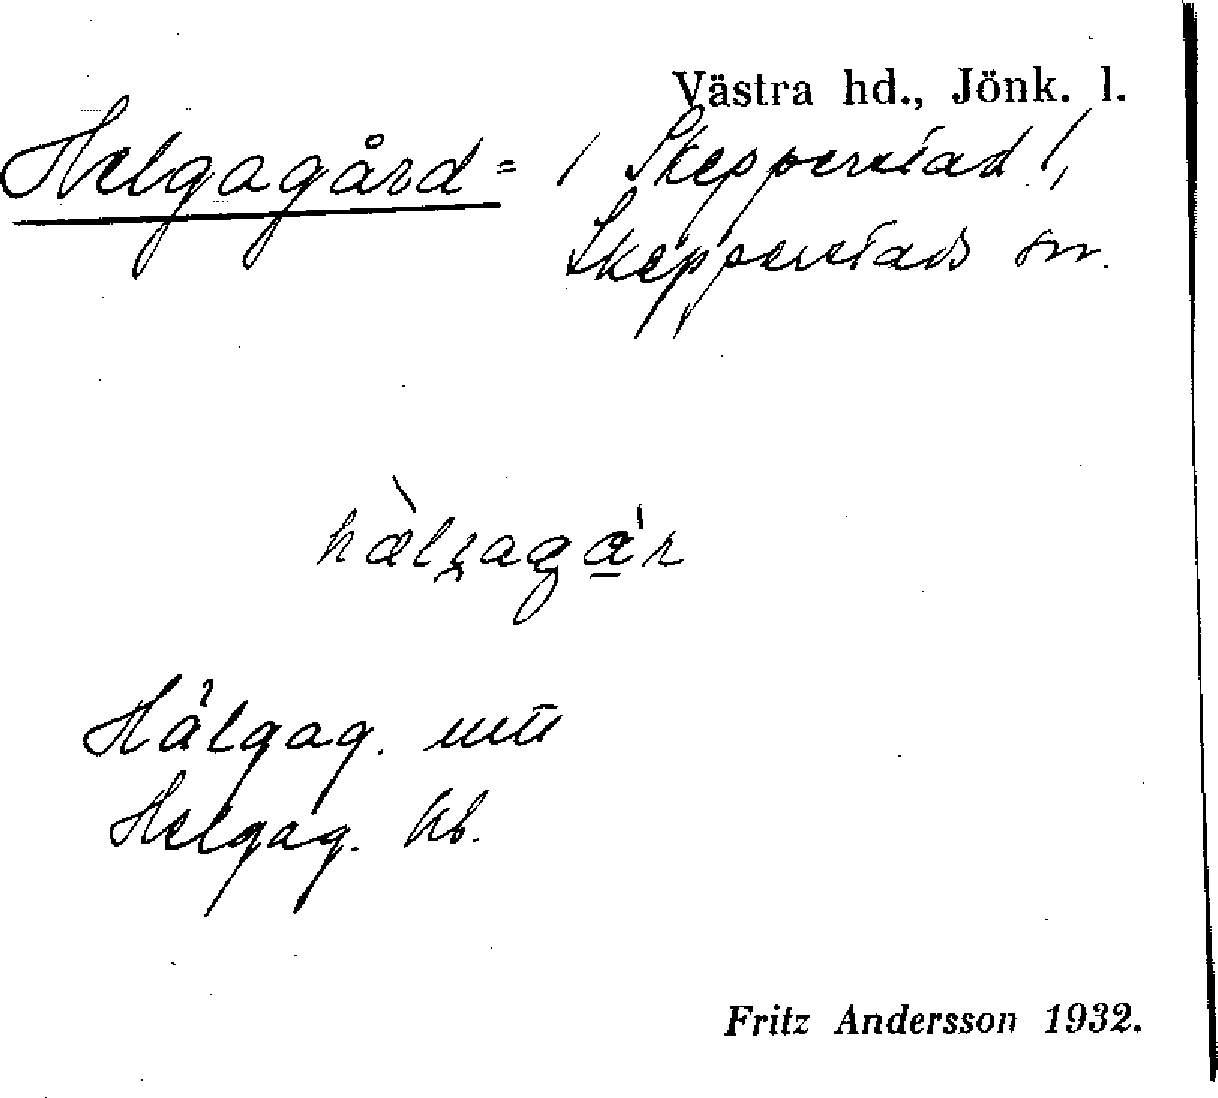 Västra hd., Jönk. l.
Helgagård = / Skepperstad /,
Skepperstads sn.
hæ̀lʒagár
Hälgag.
Helgag. kb.
Fritz Andersson 1932.